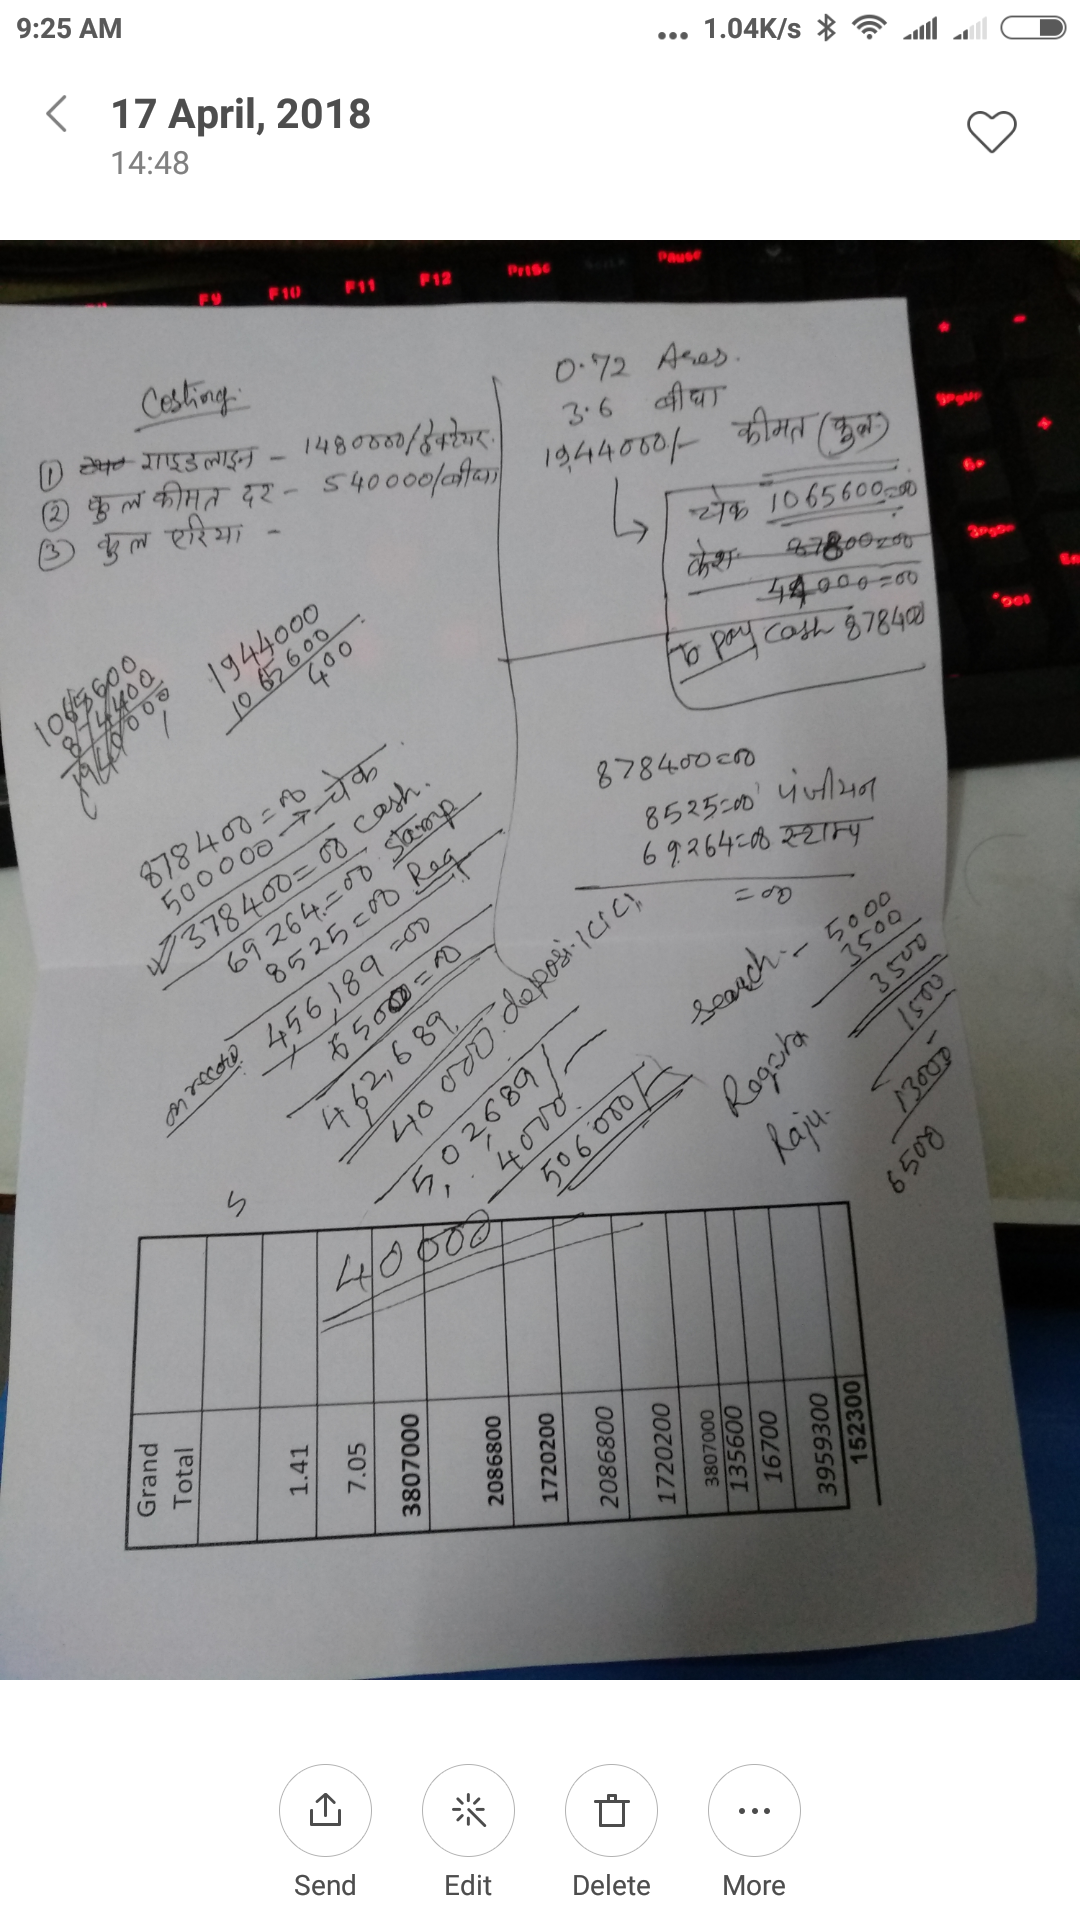 9:25 AM
... 1.04K/s
17 April, 2018
14:48
F9 F10 F11 F12 PrtSc Pause
Costing:
① गाइडलाइन - 1480000/हेक्टेयर.
② कुल कीमत दर - 540000/बीघा
③ कुल एरिया -
0.72
3.6 बीघा
19,44000/- कीमत (कुल)
चेक 1065600=00
केश 87800=00
000=00
To pay cash 878400
1065600
874400
1940000
1944000
1065600
400
878400=00
8525=00 पंजीयन
69264=00 स्टाम्प
=00
878400=00
500000 → चेक
378400=00 cash.
69264=00 stamp
8525=00 Reg
on record 456,189=00
6500=00
4,62,689
40000 deposi. ICICI
5,02689/-
4000
506000/-
search - 5000
3500
3500
1500
13000
6500
Raju.
5
40000
Grand Total
1.41
7.05
3807000
2086800
1720200
2086800
1720200
3807000
135600
16700
3959300
152300
Send Edit Delete More